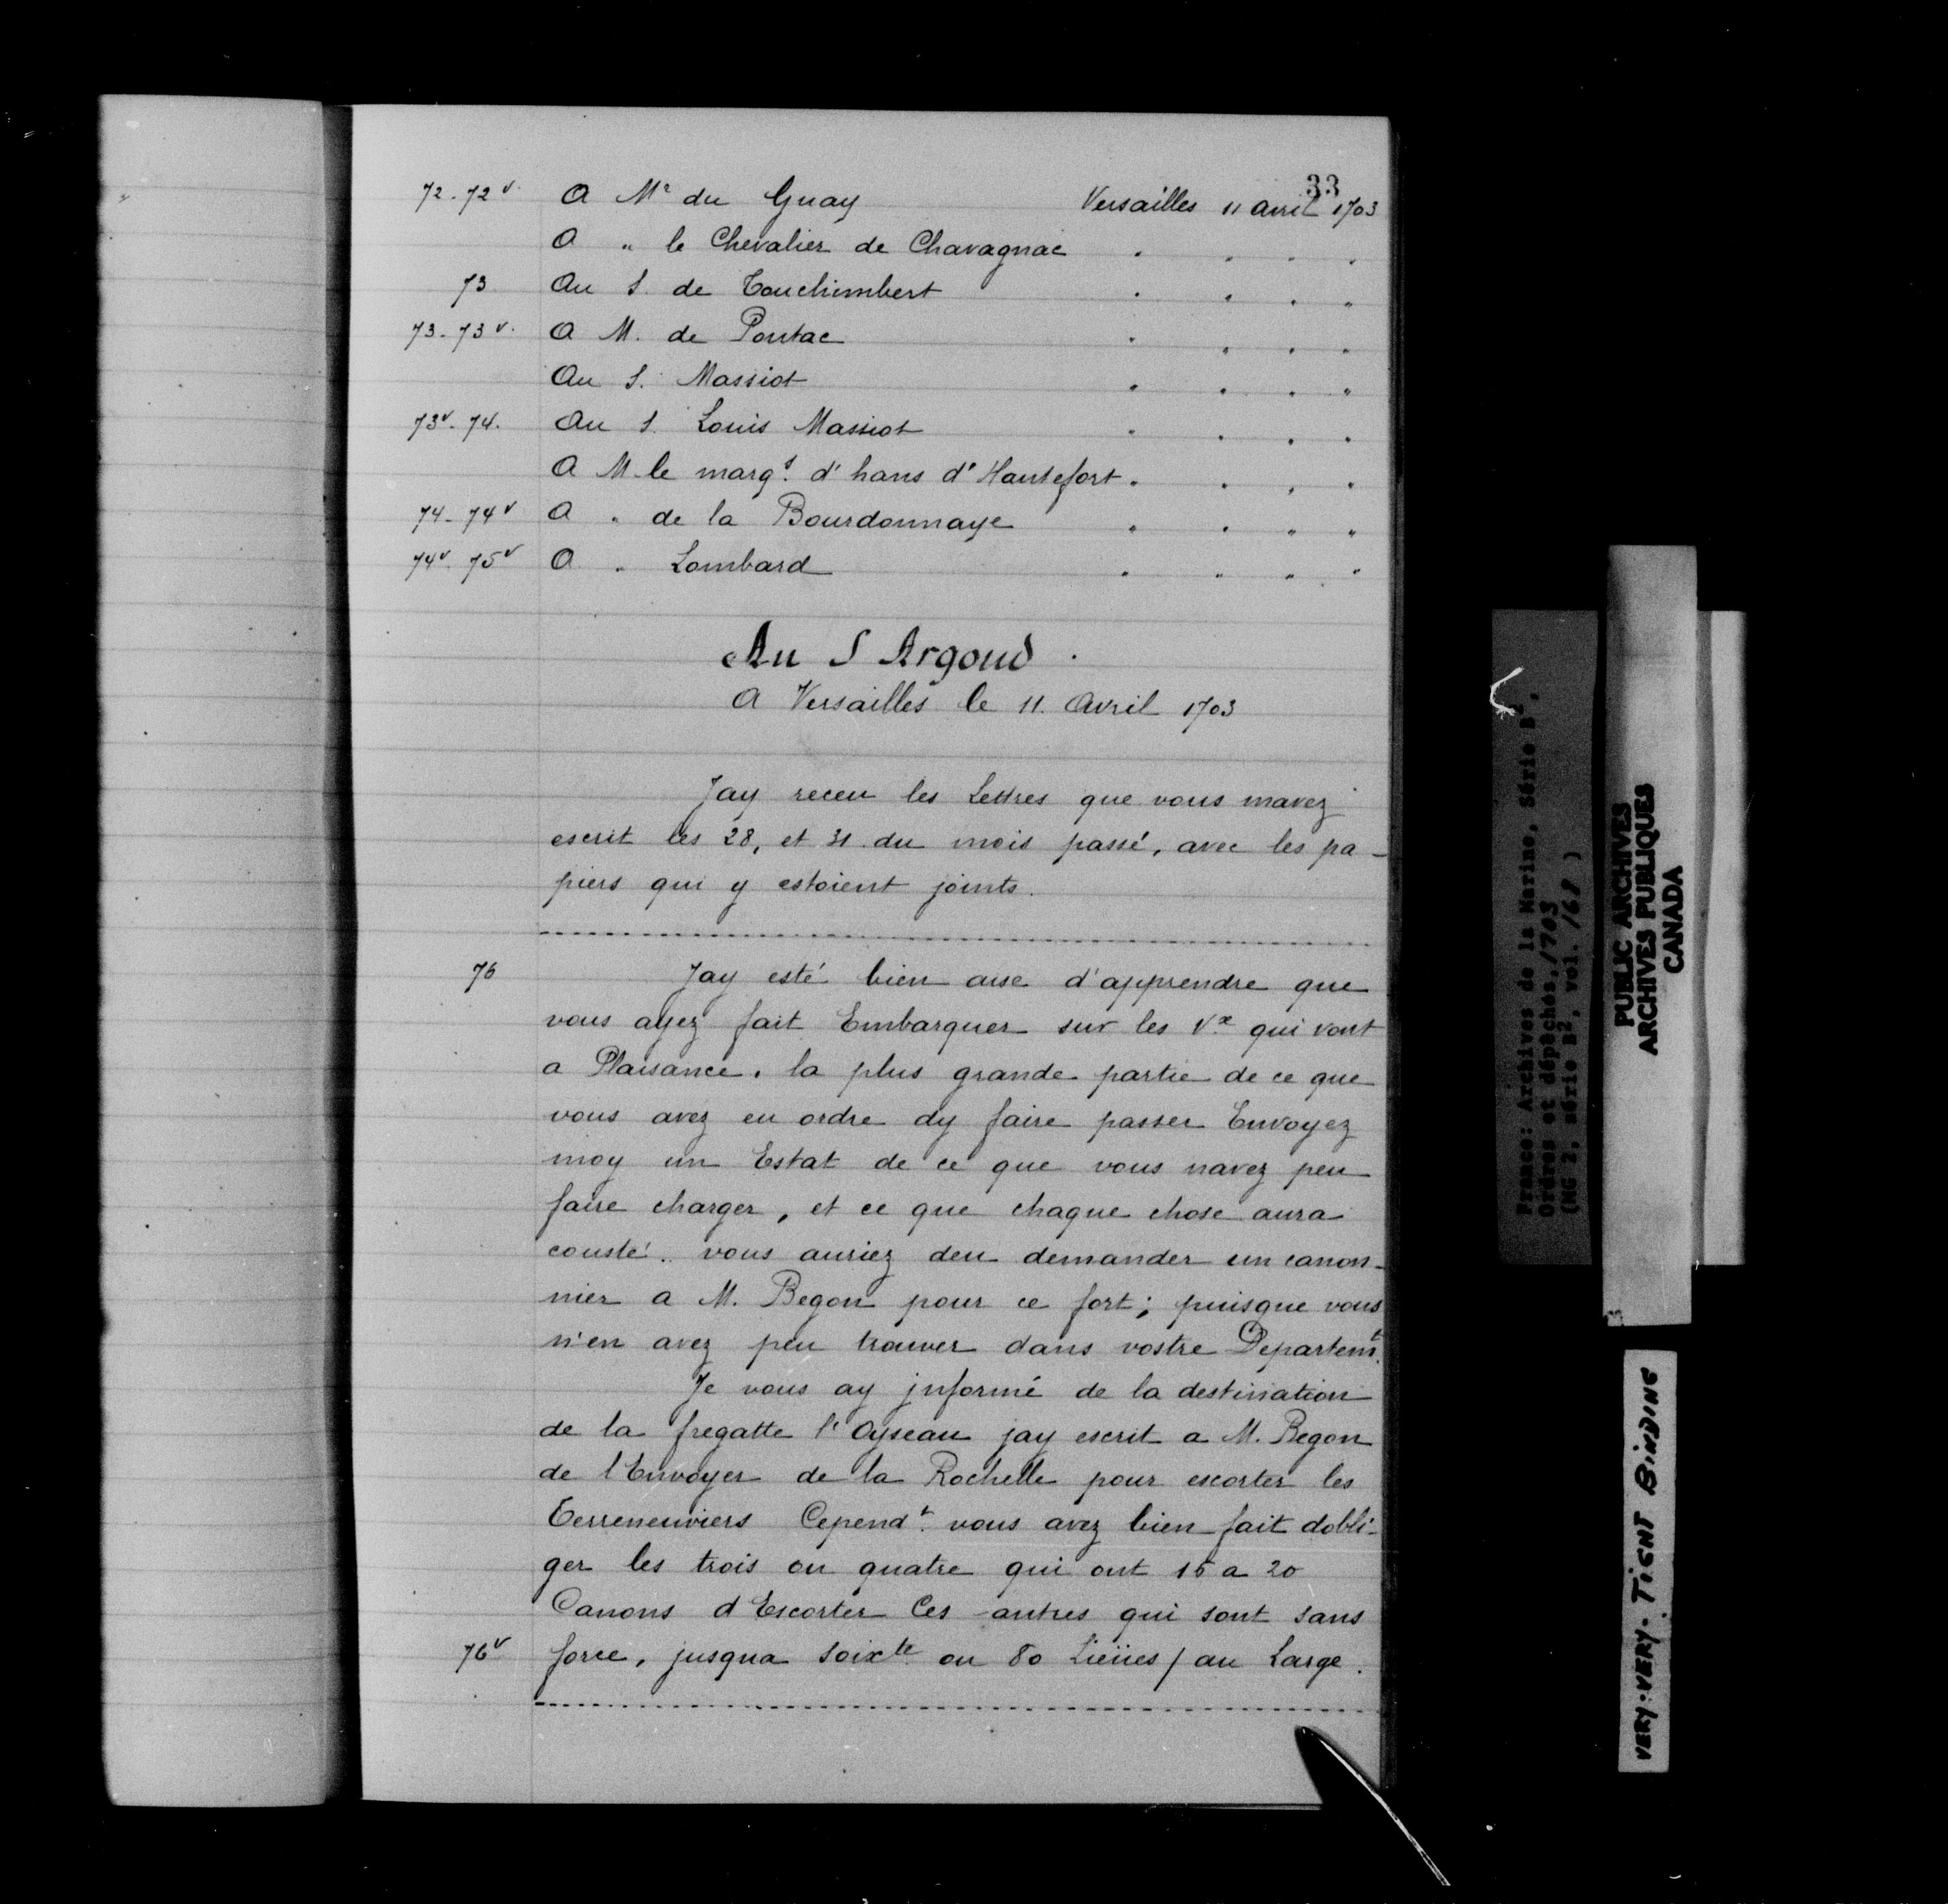 33
72-72v. A Mr du Guay Versailles 11 avril 1703
A " le Chevalier de Chavagnac " " " "
73 Au S. de Touchimbert " " " "
73-73v. A M. de Pontac " " " "
Au S. Massiot " " " "
73v-74. Au S. Louis Massiot " " " "
A M le marqs. d'hans d'Hautefort " " " "
74-74v A " de la Bourdonnaye " " " "
74v-75v A " Lombard " " " "
Au S Argoud.
A Versailles le 11. Avril 1703
Jay receu les Lettres que vous mavez
escrit les 28, et 31 du mois passé, avec les pa-
piers qui y estoient joints.
76 Jay esté bien aise d'apprendre que
vous ayez fait Embarquer sur les Vx qui vont
a Plaisance, la plus grande partie de ce que
vous avez eu ordre dy faire passer Envoyez
moy un Estat de ce que vous navez peu
faire charger, et ce que chaque chose aura
cousté. vous auriez deu demander un canon-
nier a M. Begon pour ce fort; puisque vous
n'en avez peu trouver dans vostre Departemt.
Je vous ay jnformé de la destination
de la fregatte l'Oyseau jay escrit a M. Begon
de lEnvoyer de la Rochelle pour escorter les
Terreneuviers Cependt. vous avez bien fait dobli-
ger les trois ou quatre qui ont 15 a 20
Canons dEscorter Ces autres qui sont sans
76v force, jusqua soixte ou 80 Lieües / au Large.
France: Archives de la Marine, Série B2,
Ordres et dépêchés, 1703
(MG 2, série B2, vol. 168)
PUBLIC ARCHIVES
ARCHIVES PUBLIQUES
CANADA
VERY-VERY-TIGHT BINDING